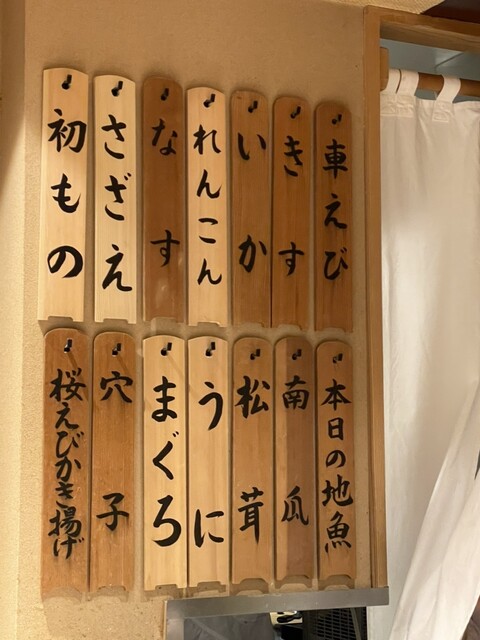 車えび
きす
いか
れんこん
なす
さざえ
初もの
本日の地魚
南瓜
松茸
うに
まぐろ
穴子
桜えびかき揚げ